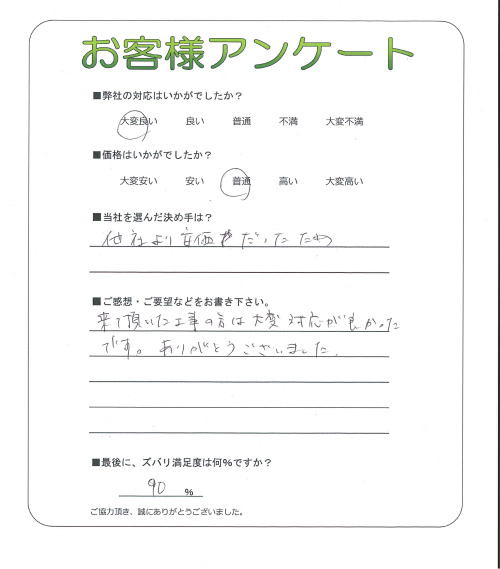 お客様アンケート
■弊社の対応はいかがでしたか？
大変良い 良い 普通 不満 大変不満
■価格はいかがでしたか？
大変安い 安い 普通 高い 大変高い
■当社を選んだ決め手は？
他社より安価だったため
■ご感想・ご要望などをお書き下さい。
来て頂いた工事の方は大変対応が良かった
です。ありがとうございました。
■最後に、ズバリ満足度は何％ですか？
90 ％
ご協力頂き、誠にありがとうございました。